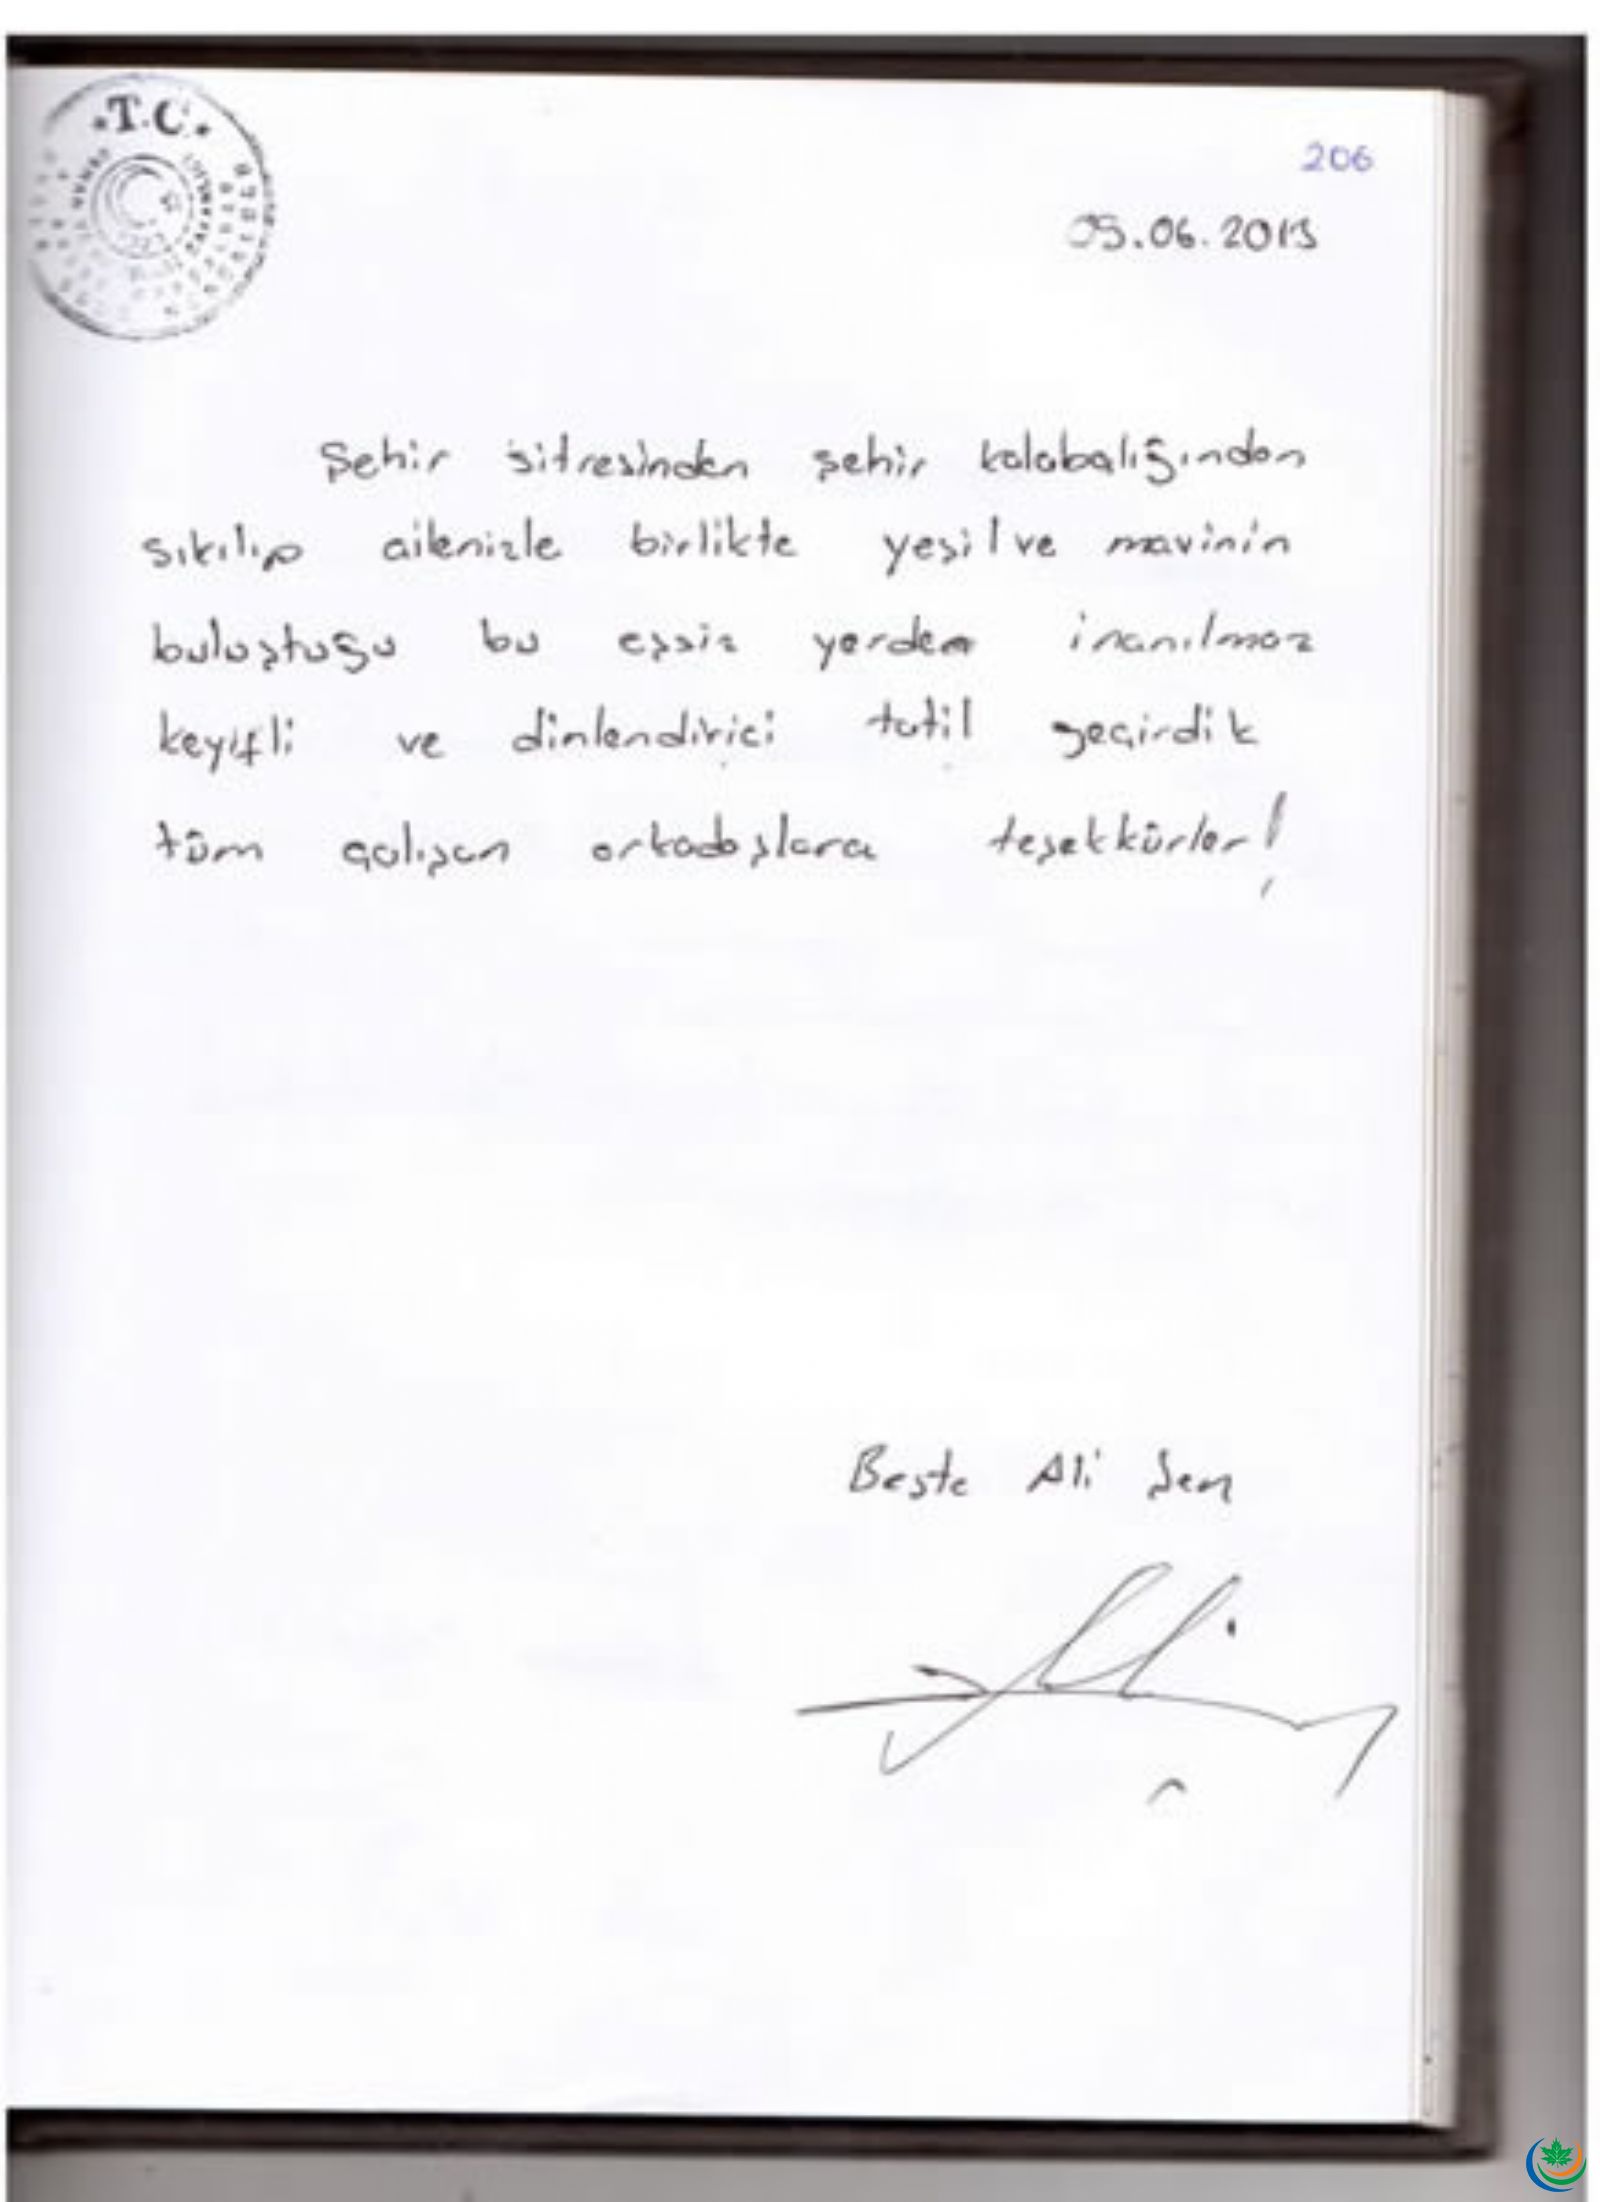 .T.C.
206
05.06.2013
Şehir sitresinden şehir kalabalığından
sıkılıp ailenizle birlikte yeşil ve mavinin
buluştuğu bu eşsiz yerden inanılmaz
keyifli ve dinlendirici tatil geçirdik
tüm çalışan arkadaşlara teşekkürler!
Beste Ali Şen